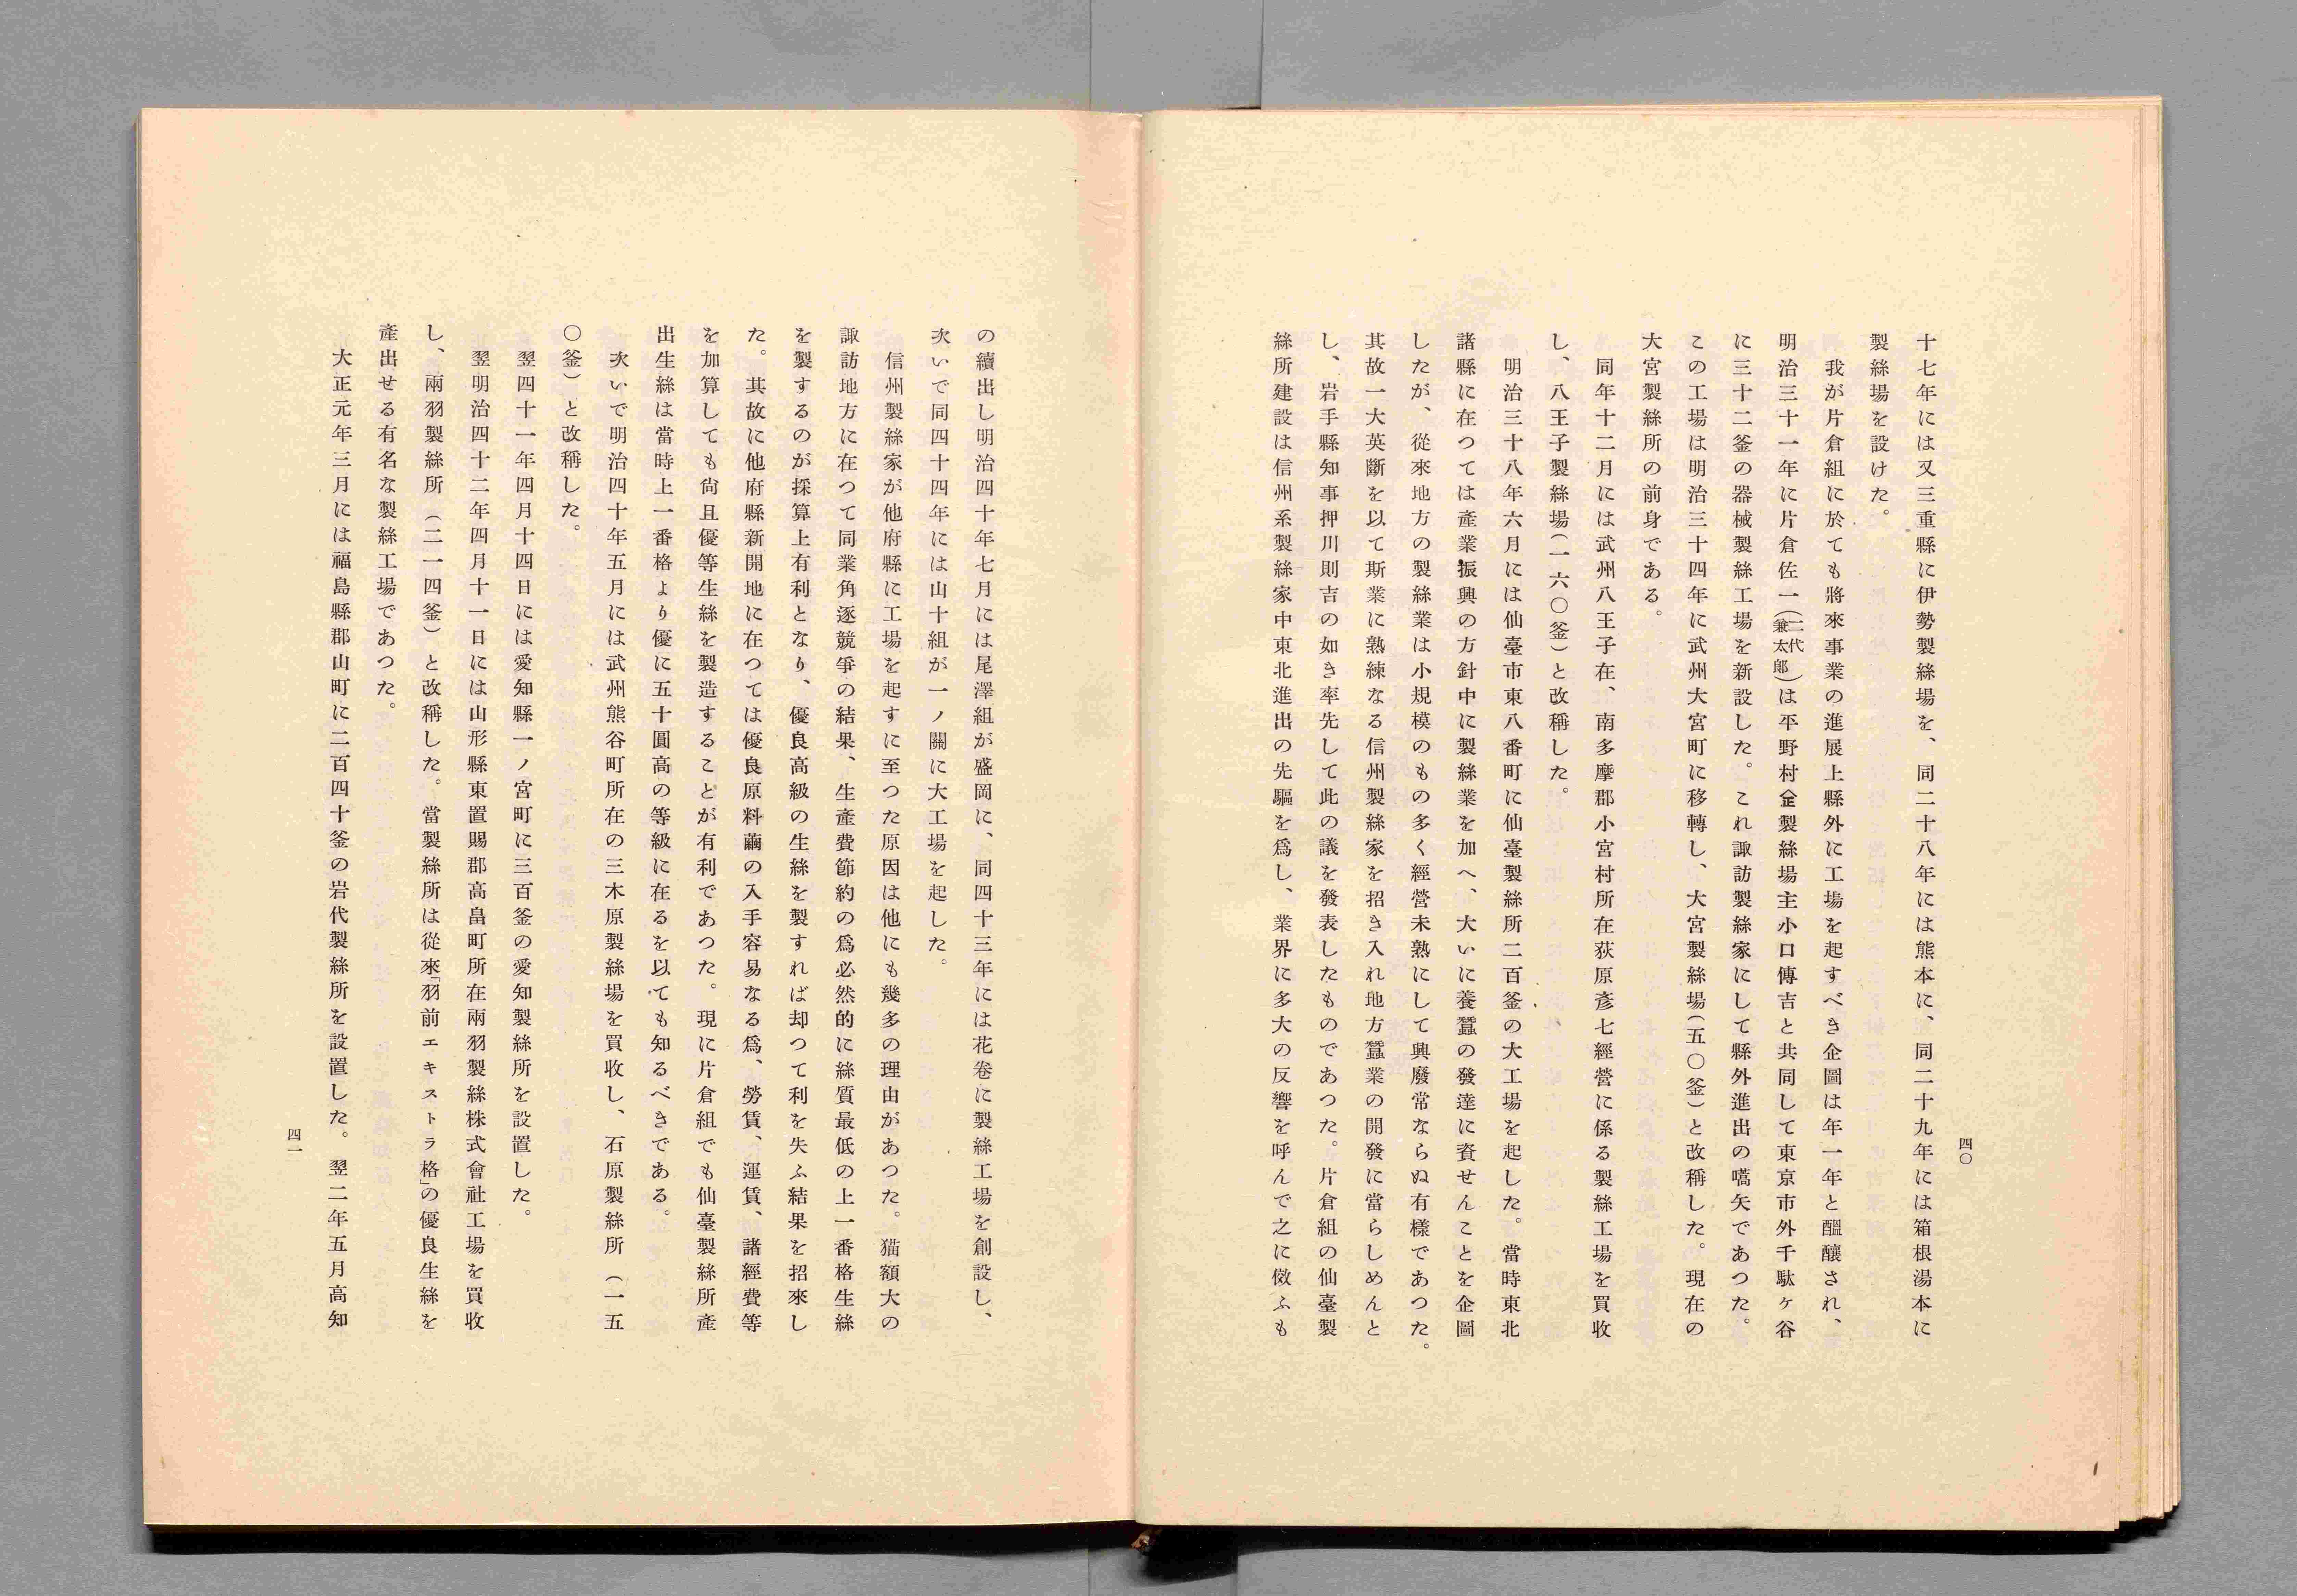 四〇
十七年には又三重縣に伊勢製絲場を、同二十八年には熊本に、同二十九年には箱根湯本に
製絲場を設けた。
我が片倉組に於ても將來事業の進展上縣外に工場を起すべき企圖は年一年と醞釀され、
明治三十一年に片倉佐一(二代兼太郎)は平野村製絲場主小口傳吉と共同して東京市外千駄ヶ谷
に三十二釜の器械製絲工場を新設した。これ諏訪製絲家にして縣外進出の嚆矢であつた。
この工場は明治三十四年に武州大宮町に移轉し、大宮製絲場(五〇釜)と改稱した。現在の
大宮製絲所の前身である。
同年十二月には武州八王子在、南多摩郡小宮村所在荻原彥七經營に係る製絲工場を買收
し、八王子製絲場(一六〇釜)と改稱した。
明治三十八年六月には仙臺市東八番町に仙臺製絲所二百釜の大工場を起した。當時東北
諸縣に在つては產業振興の方針中に製絲業を加へ、大いに養蠶の發達に資せんことを企圖
したが、從來地方の製絲業は小規模のもの多く經營未熟にして興廢常ならぬ有樣であつた。
其故一大英斷を以て斯業に熟練なる信州製絲家を招き入れ地方蠶業の開發に當らしめんと
し、岩手縣知事押川則吉の如き率先して此の議を發表したものであつた。片倉組の仙臺製
絲所建設は信州系製絲家中東北進出の先驅を爲し、業界に多大の反響を呼んで之に倣ふも
の續出し明治四十年七月には尾澤組が盛岡に、同四十三年には花卷に製絲工場を創設し、
次いで同四十四年には山十組が一ノ關に大工場を起した。
信州製絲家が他府縣に工場を起すに至つた原因は他にも幾多の理由があつた。猫額大の
諏訪地方に在つて同業角逐競爭の結果、生產費節約の爲必然的に絲質最低の上一番格生絲
を製するのが採算上有利となり、優良高級の生絲を製すれば却つて利を失ふ結果を招來し
た。其故に他府縣新開地に在つては優良原料繭の入手容易なる爲、勞賃、運賃、諸經費等
を加算しても尙且優等生絲を製造することが有利であつた。現に片倉組でも仙臺製絲所產
出生絲は當時上一番格より優に五十圓高の等級に在るを以ても知るべきである。
次いで明治四十年五月には武州熊谷町所在の三木原製絲場を買收し、石原製絲所(一五
〇釜)と改稱した。
翌四十一年四月十四日には愛知縣一ノ宮町に三百釜の愛知製絲所を設置した。
翌明治四十二年四月十一日には山形縣東置賜郡高畠町所在兩羽製絲株式會社工場を買收
し、兩羽製絲所(二一四釜)と改稱した。當製絲所は從來「羽前エキストラ格」の優良生絲を
產出せる有名な製絲工場であつた。
大正元年三月には福島縣郡山町に二百四十釜の岩代製絲所を設置した。翌二年五月高知
四一